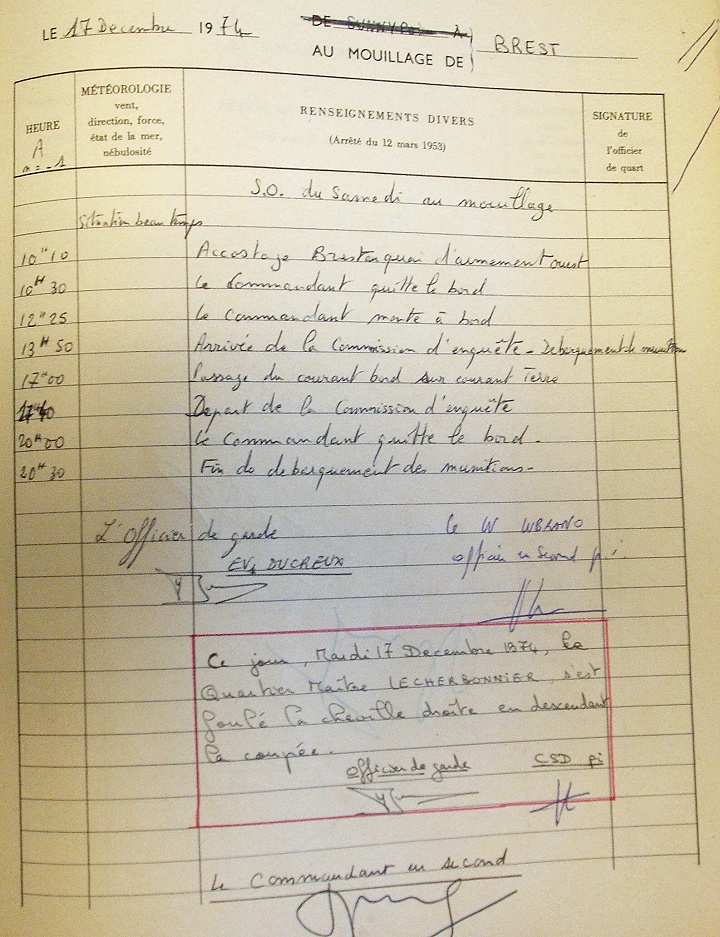 LE 17 Decembre 1974
DE SUNNY A
AU MOUILLAGE DE BREST
HEURE
A
n = -1
MÉTÉOROLOGIE
vent,
direction, force,
état de la mer,
nébulosité
RENSEIGNEMENTS DIVERS
(Arrêté du 12 mars 1953)
SIGNATURE
de
l'officier
de quart
S.O. du Samedi au mouillage
Situation beau temps
10H10 Accostage Brest quai d'armement ouest
10H30 Le Commandant quitte le bord
12H25 Le Commandant monte à bord
13H50 Arrivée de la Commission d'enquête - Debarquement de munitions
17H00 Passage du courant bord sur courant Terre
Depart de la Commission d'enquête
20H00 Le Commandant quitte le bord.
20H30 Fin de debarquement des munitions.
L'Officier de garde
EV1 DUCREUX
Le
officier en second p.i.
Ce jour, Mardi 17 Decembre 1974, Le
Quartier Maître LECHERBONNIER, s'est
foulé la cheville droite en descendant
la coupée.
Officier de garde CSD pi
Le Commandant en second